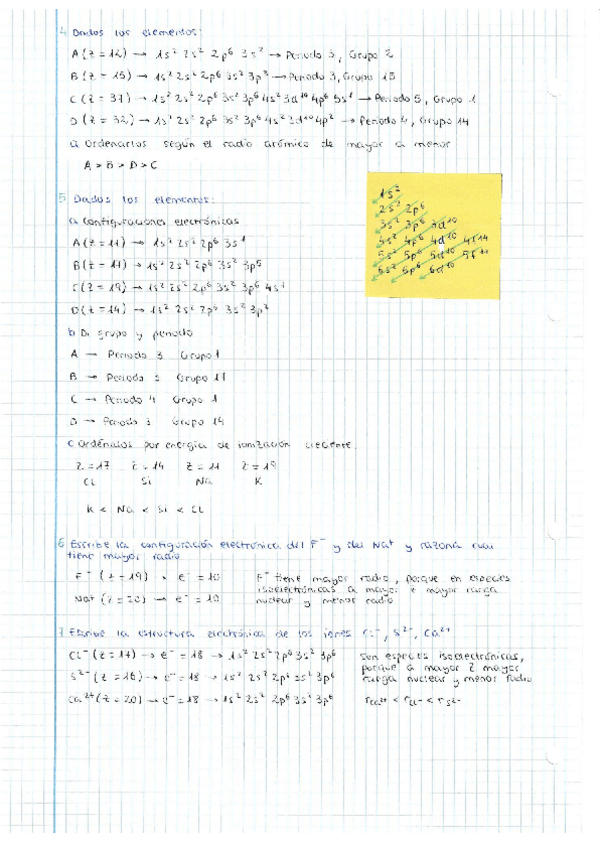 4 Dados los elementos:
A (Z = 12) → 1s² 2s² 2p⁶ 3s² → Periodo 3, Grupo 2
B (Z = 15) → 1s² 2s² 2p⁶ 3s² 3p³ → Periodo 3, Grupo 15
C (Z = 37) → 1s² 2s² 2p⁶ 3s² 3p⁶ 4s² 3d¹⁰ 4p⁶ 5s¹ → Periodo 5, Grupo 1
D (Z = 32) → 1s² 2s² 2p⁶ 3s² 3p⁶ 4s² 3d¹⁰ 4p² → Periodo 4, Grupo 14
a Ordenarlos según el radio atómico de mayor a menor
A > B > D > C
5 Dados los elementos:
a Configuraciones electrónicas
A (Z = 11) → 1s² 2s² 2p⁶ 3s¹
B (Z = 17) → 1s² 2s² 2p⁶ 3s² 3p⁵
C (Z = 19) → 1s² 2s² 2p⁶ 3s² 3p⁶ 4s¹
D (Z = 14) → 1s² 2s² 2p⁶ 3s² 3p²
1s²
2s² 2p⁶
3s² 3p⁶ 3d¹⁰
4s² 4p⁶ 4d¹⁰ 4f¹⁴
5s² 5p⁶ 5d¹⁰ 5f¹⁴
6s² 6p⁶ 6d¹⁰
b Di grupo y periodo
A → Periodo 3 Grupo 1
B → Periodo 3 Grupo 17
C → Periodo 4 Grupo 1
D → Periodo 3 Grupo 14
c Ordénalos por energía de ionización creciente.
Z = 17 Z = 14 Z = 11 Z = 19
Cl Si Na K
K < Na < Si < Cl
6 Escribe la configuración electrónica del F⁻ y del Na⁺ y razona cual
tiene mayor radio
F⁻ (Z = 19) → e⁻ = 10
Na⁺ (Z = 20) → e⁻ = 10
F⁻ tiene mayor radio, porque en especies
isoelectrónicas a mayor Z mayor carga
nuclear y menor radio
7 Escribe la estructura electrónica de los iones Cl⁻, S²⁻, Ca²⁺
Cl⁻ (Z = 17) → e⁻ = 18 → 1s² 2s² 2p⁶ 3s² 3p⁶
S²⁻ (Z = 16) → e⁻ = 18 → 1s² 2s² 2p⁶ 3s² 3p⁶
Ca²⁺ (Z = 20) → e⁻ = 18 → 1s² 2s² 2p⁶ 3s² 3p⁶
Son especies isoelectrónicas,
porque a mayor Z mayor
carga nuclear y menor radio
rCa²⁺ < rCl⁻ < rS²⁻